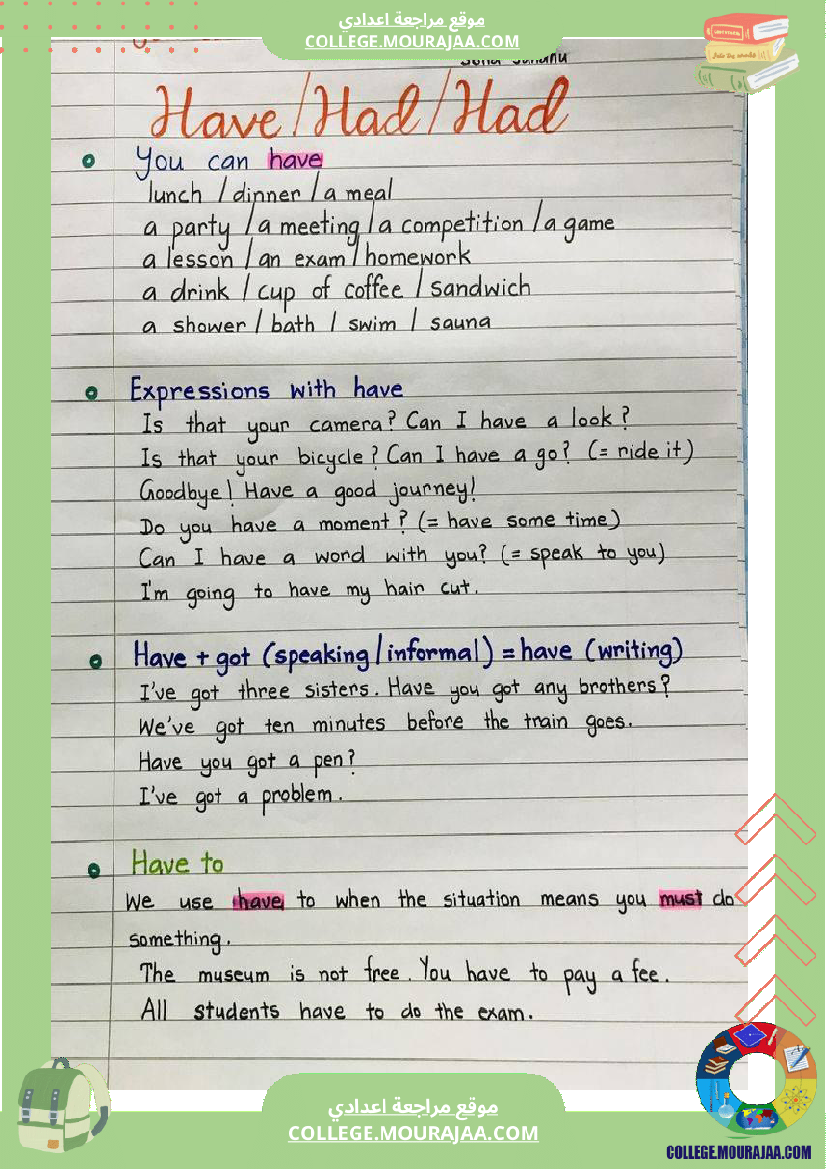 موقع مراجعة اعدادي
COLLEGE.MOURAJAA.COM
Have/Had/Had
You can have
lunch / dinner / a meal
a party / a meeting / a competition / a game
a lesson / an exam / homework
a drink / cup of coffee / sandwich
a shower / bath / swim / sauna
Expressions with have
Is that your camera? Can I have a look?
Is that your bicycle? Can I have a go? (= ride it)
Goodbye! Have a good journey!
Do you have a moment? (= have some time)
Can I have a word with you? (= speak to you)
I'm going to have my hair cut.
Have + got (speaking/informal) = have (writing)
I've got three sisters. Have you got any brothers?
We've got ten minutes before the train goes.
Have you got a pen?
I've got a problem.
Have to
We use have to when the situation means you must do
something.
The museum is not free. You have to pay a fee.
All students have to do the exam.
موقع مراجعة اعدادي
COLLEGE.MOURAJAA.COM
COLLEGE.MOURAJAA.COM